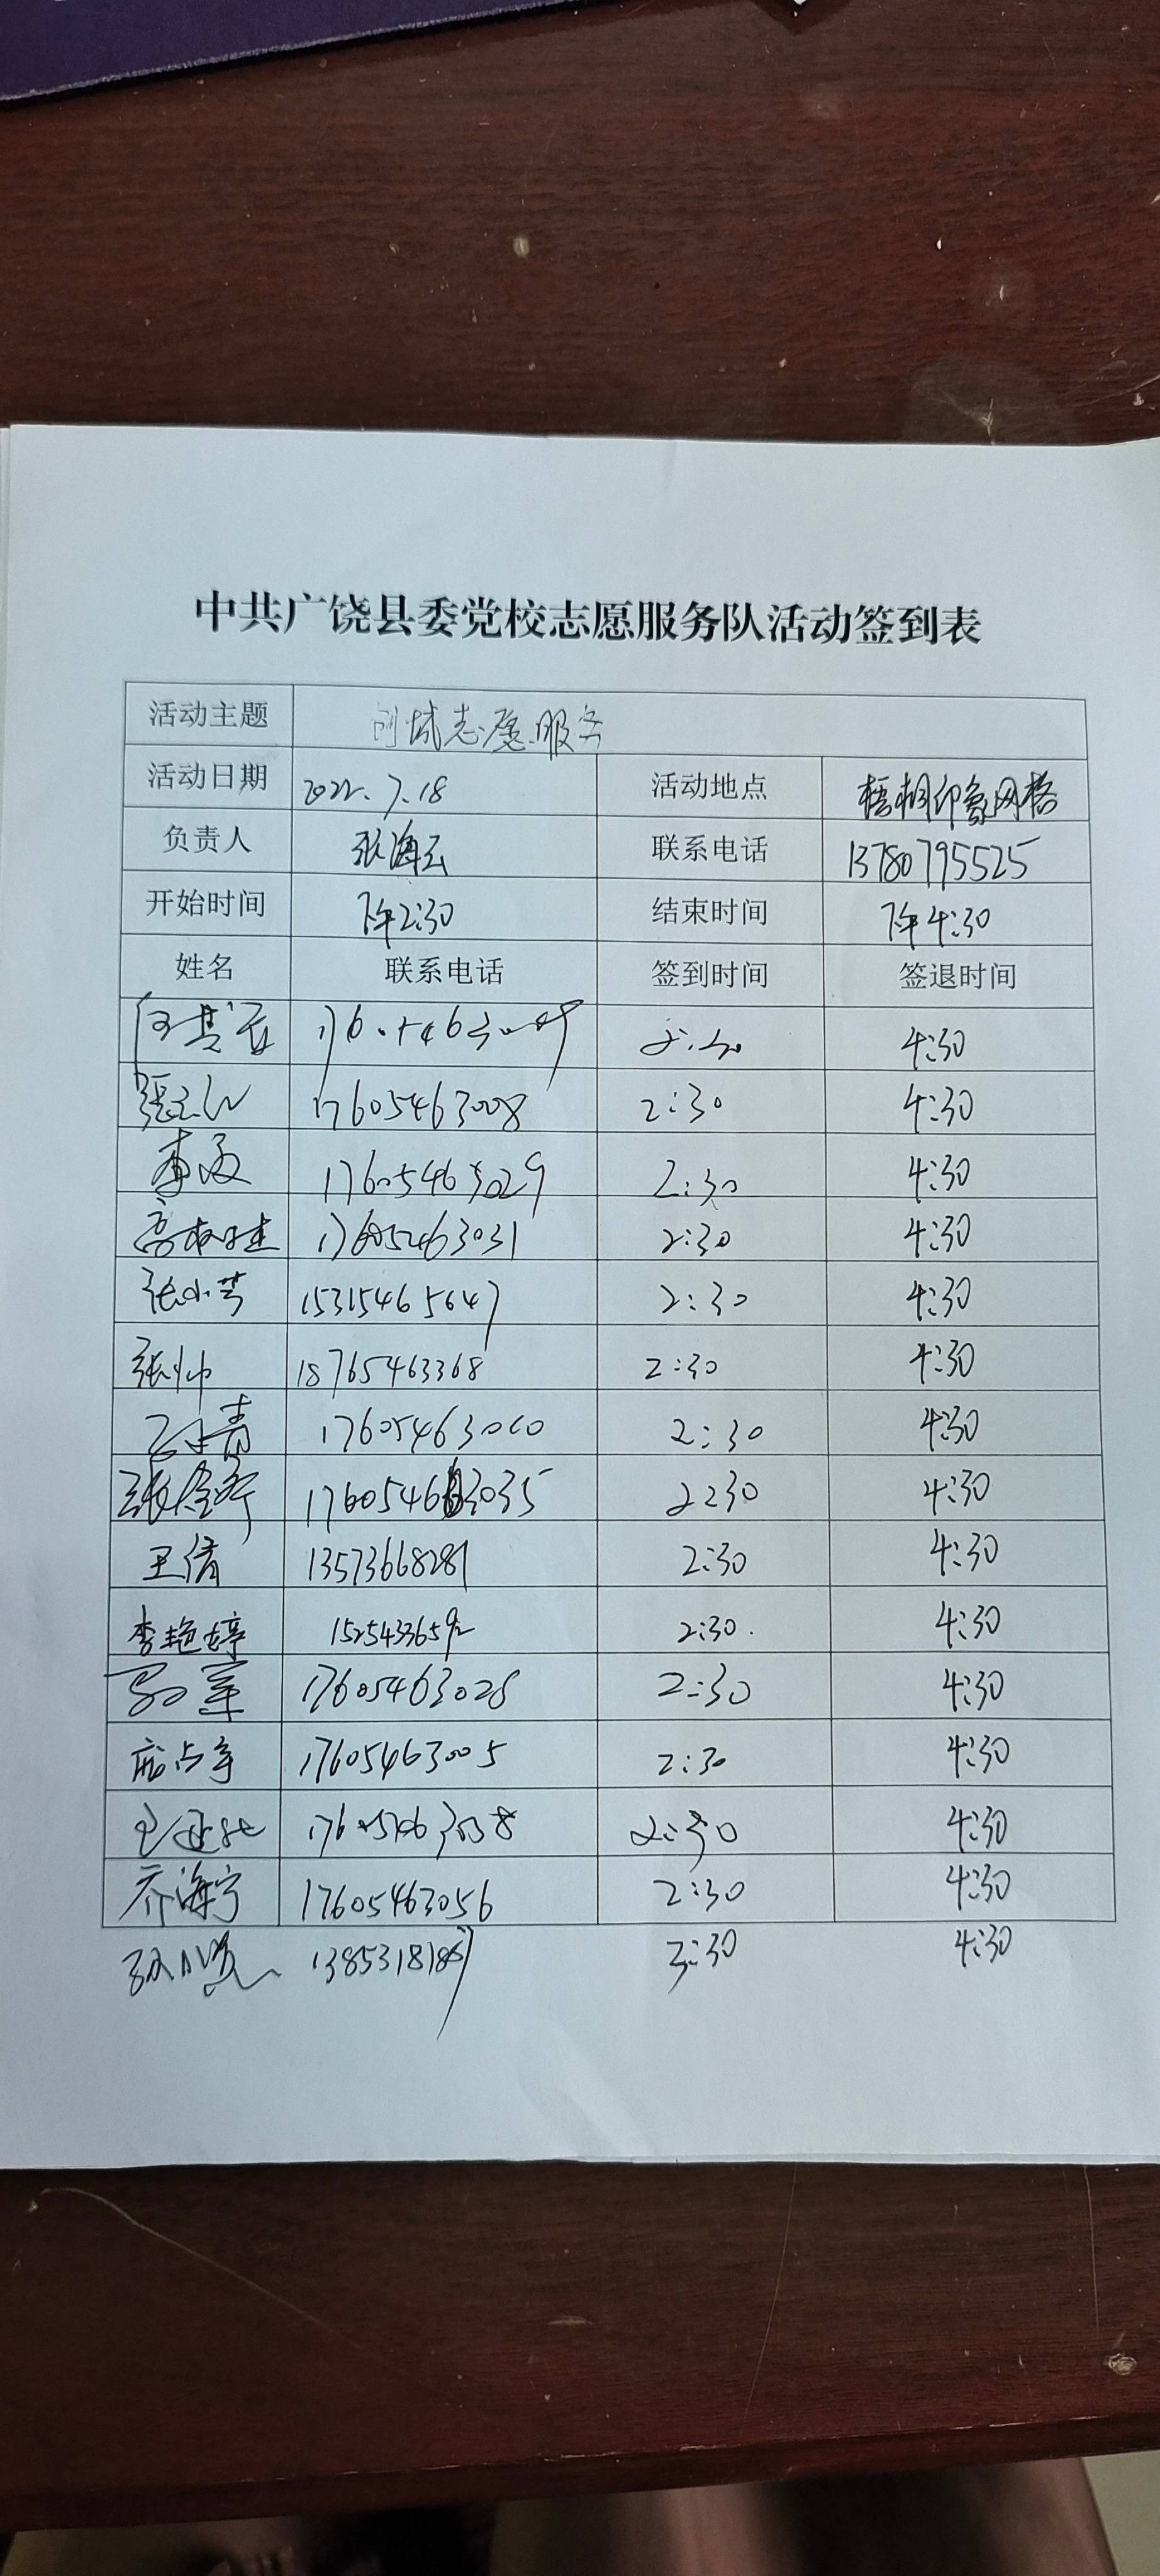 中共广饶县委党校志愿服务队活动签到表
活动主题 创城志愿服务
活动日期 2022.7.18 活动地点 梧桐印象网格
负责人 张海云 联系电话 13780795525
开始时间 下午2:30 结束时间 下午4:30
姓名 联系电话 签到时间 签退时间
4:30
17605463008 2:30 4:30
17605463029 2:30 4:30
17605463031 2:30 4:30
张小芳 15315465647 2:30 4:30
张帅 18765463368 2:30 4:30
17605463060 2:30 4:30
2:30 4:30
王倩 13573668281 2:30 4:30
李艳婷 15254336592 2:30. 4:30
17605463028 2:30 4:30
17605463005 2:30 4:30
2:30 4:30
乔海宁 17605463056 2:30 4:30
4:30